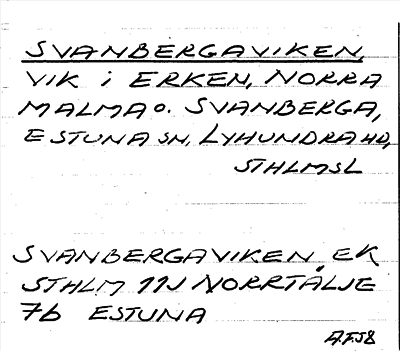 SVANBERGAVIKEN,
VIK i ERKEN, NORRA
MALMA o. SVANBERGA,
ESTUNA SN, LYHUNDRA HD,
STHLMSL
SVANBERGAVIKEN, EK
STHLM 11J NORRTÄLJE
7b ESTUNA
A.F.58